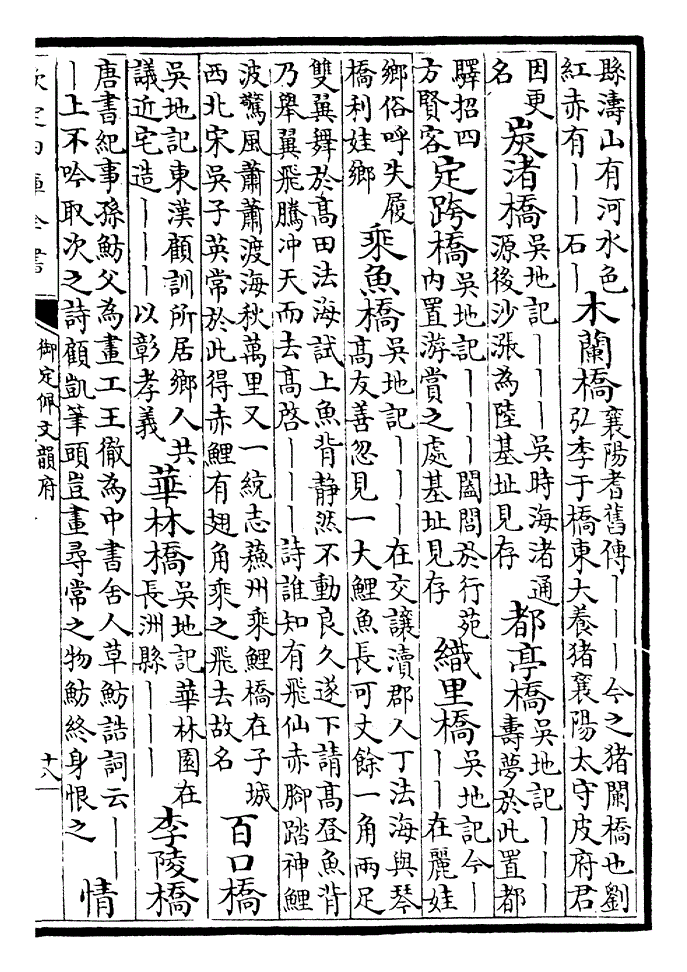 縣濤山有河水色
紅赤有丨丨石丨
木蘭橋
襄陽耆舊傳丨丨丨今之猪闌橋也劉
弘李于橋東大養猪襄陽太守皮府君
因更
名
炭渚橋
吳地記丨丨丨吳時海渚通
源後沙漲為陸基址見存
都亭橋
吳地記丨丨丨
壽夢於此置都
驛招四
方賢客
定跨橋
吳地記丨丨丨闔閭於行苑
内置游賞之處基址見存
織里橋
吳地記今丨
丨在麗娃
鄉俗呼失履
橋利娃鄉
乘魚橋
吳地記丨丨丨在交讓瀆郡人丁法海與琴
高友善忽見一大鯉魚長可丈餘一角兩足
雙翼舞於高田法海試上魚背静然不動良久遂下請高登魚背
乃舉翼飛騰冲天而去高啓丨丨丨詩誰知有飛仙赤腳踏神鯉
波驚風蕭蕭渡海秋萬里又一統志蘇州乘鯉橋在子城
西北宋吳子英常於此得赤鯉有翅角乘之飛去故名
百口橋
吳地記東漢顧訓所居鄉人共
議近宅造丨丨丨以彰孝義
華林橋
吳地記華林園在
長洲縣丨丨丨
李陵橋
唐書紀事孫魴父為畫工王徹為中書舍人草魴誥詞云丨丨
丨上不吟取次之詩顧凱筆頭豈畫尋常之物魴終身恨之
情
欽定四庫全書
御定佩文韻府
十八